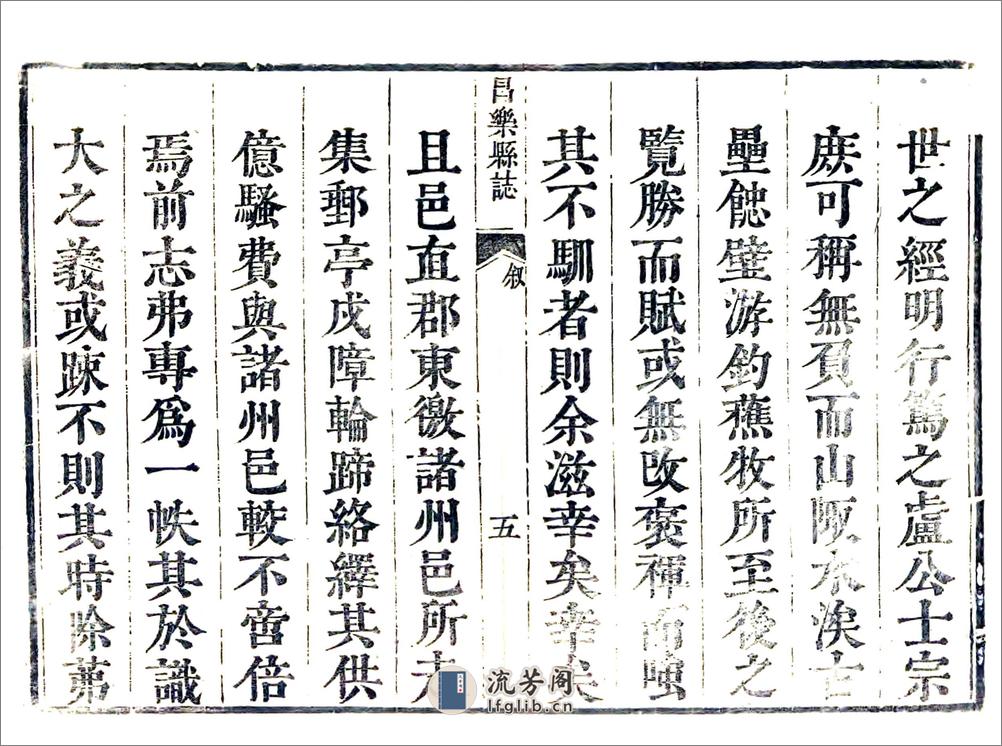 世之經明行篤之盧公士宗
庶可稱無負而山陬水涘古
壘餿壁游釣蕉牧所至後之
覽勝而賦或無改褒褌而嗤
其不馴者則余滋幸矣幸矣
昌樂縣誌
敘
五
且邑直郡東徼諸州邑所走
集郵亭戍障輪蹄絡繹其供
億騷費與諸州邑較不啻倍
焉前志弗專爲一帙其於識
大之義或踈不則其時除苐
流芳阁
lfglib.cn